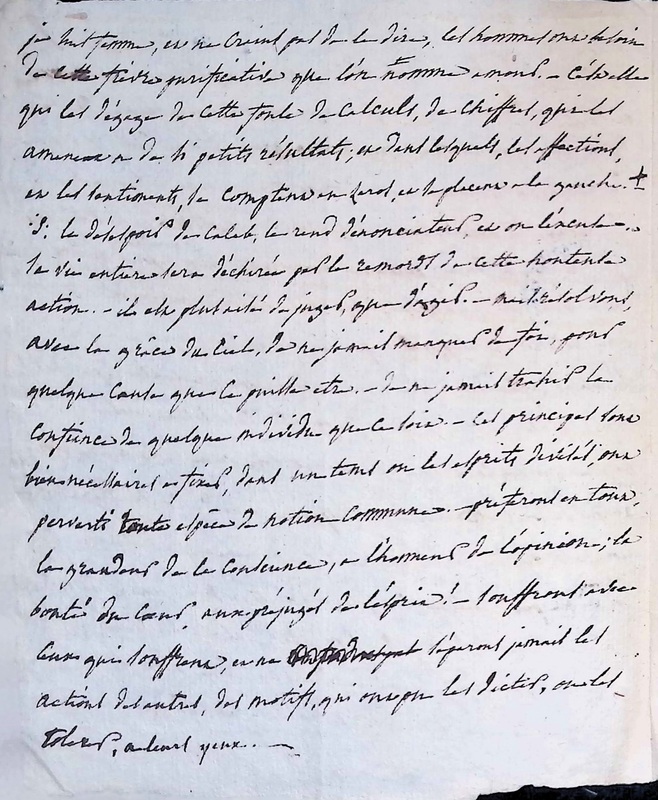 je suis femme, et ne crains pas de le dire, les hommes ont besoin
de cette fièvre purificative que l'on nomme amour. – C'est elle
qui les dégage de cette foule de calculs, de chiffres, qui les
amenent a de si petits résultats; et dans lesquels, les affections,
et les sentiments, se comptent en zerol, et se placent a la gauche. +
Si le désespoir de Caleb, le rend dénonciateur, et on l'écoute –
sa vie entiere sera déchirée par le remords de cette honteuse
action. – il est plus aisé de juger, que d'agir. – mais résolvons,
avec la grâce du Ciel, de ne jamais manquer de foi, pour
quelque cause que ce puisse etre. – de ne jamais trahir la
confience de quelque individu que ce soit. – Ces principes sont
bien nécessaires a fixer, dans un tems ou les esprits divisés, ont
perverti toute espèce de notion commune. – préferons en tout,
la grandeur de la conscience, a l'honneur de l'opinion; la
bonté du cœur, aux préjugés de l'esprit! – souffrons avec
ceux qui souffrent, et ne séparons jamais les
actions des autres, des motifs, qui ont pu les dicter, ou les
tolerer, a leurs yeux. . –